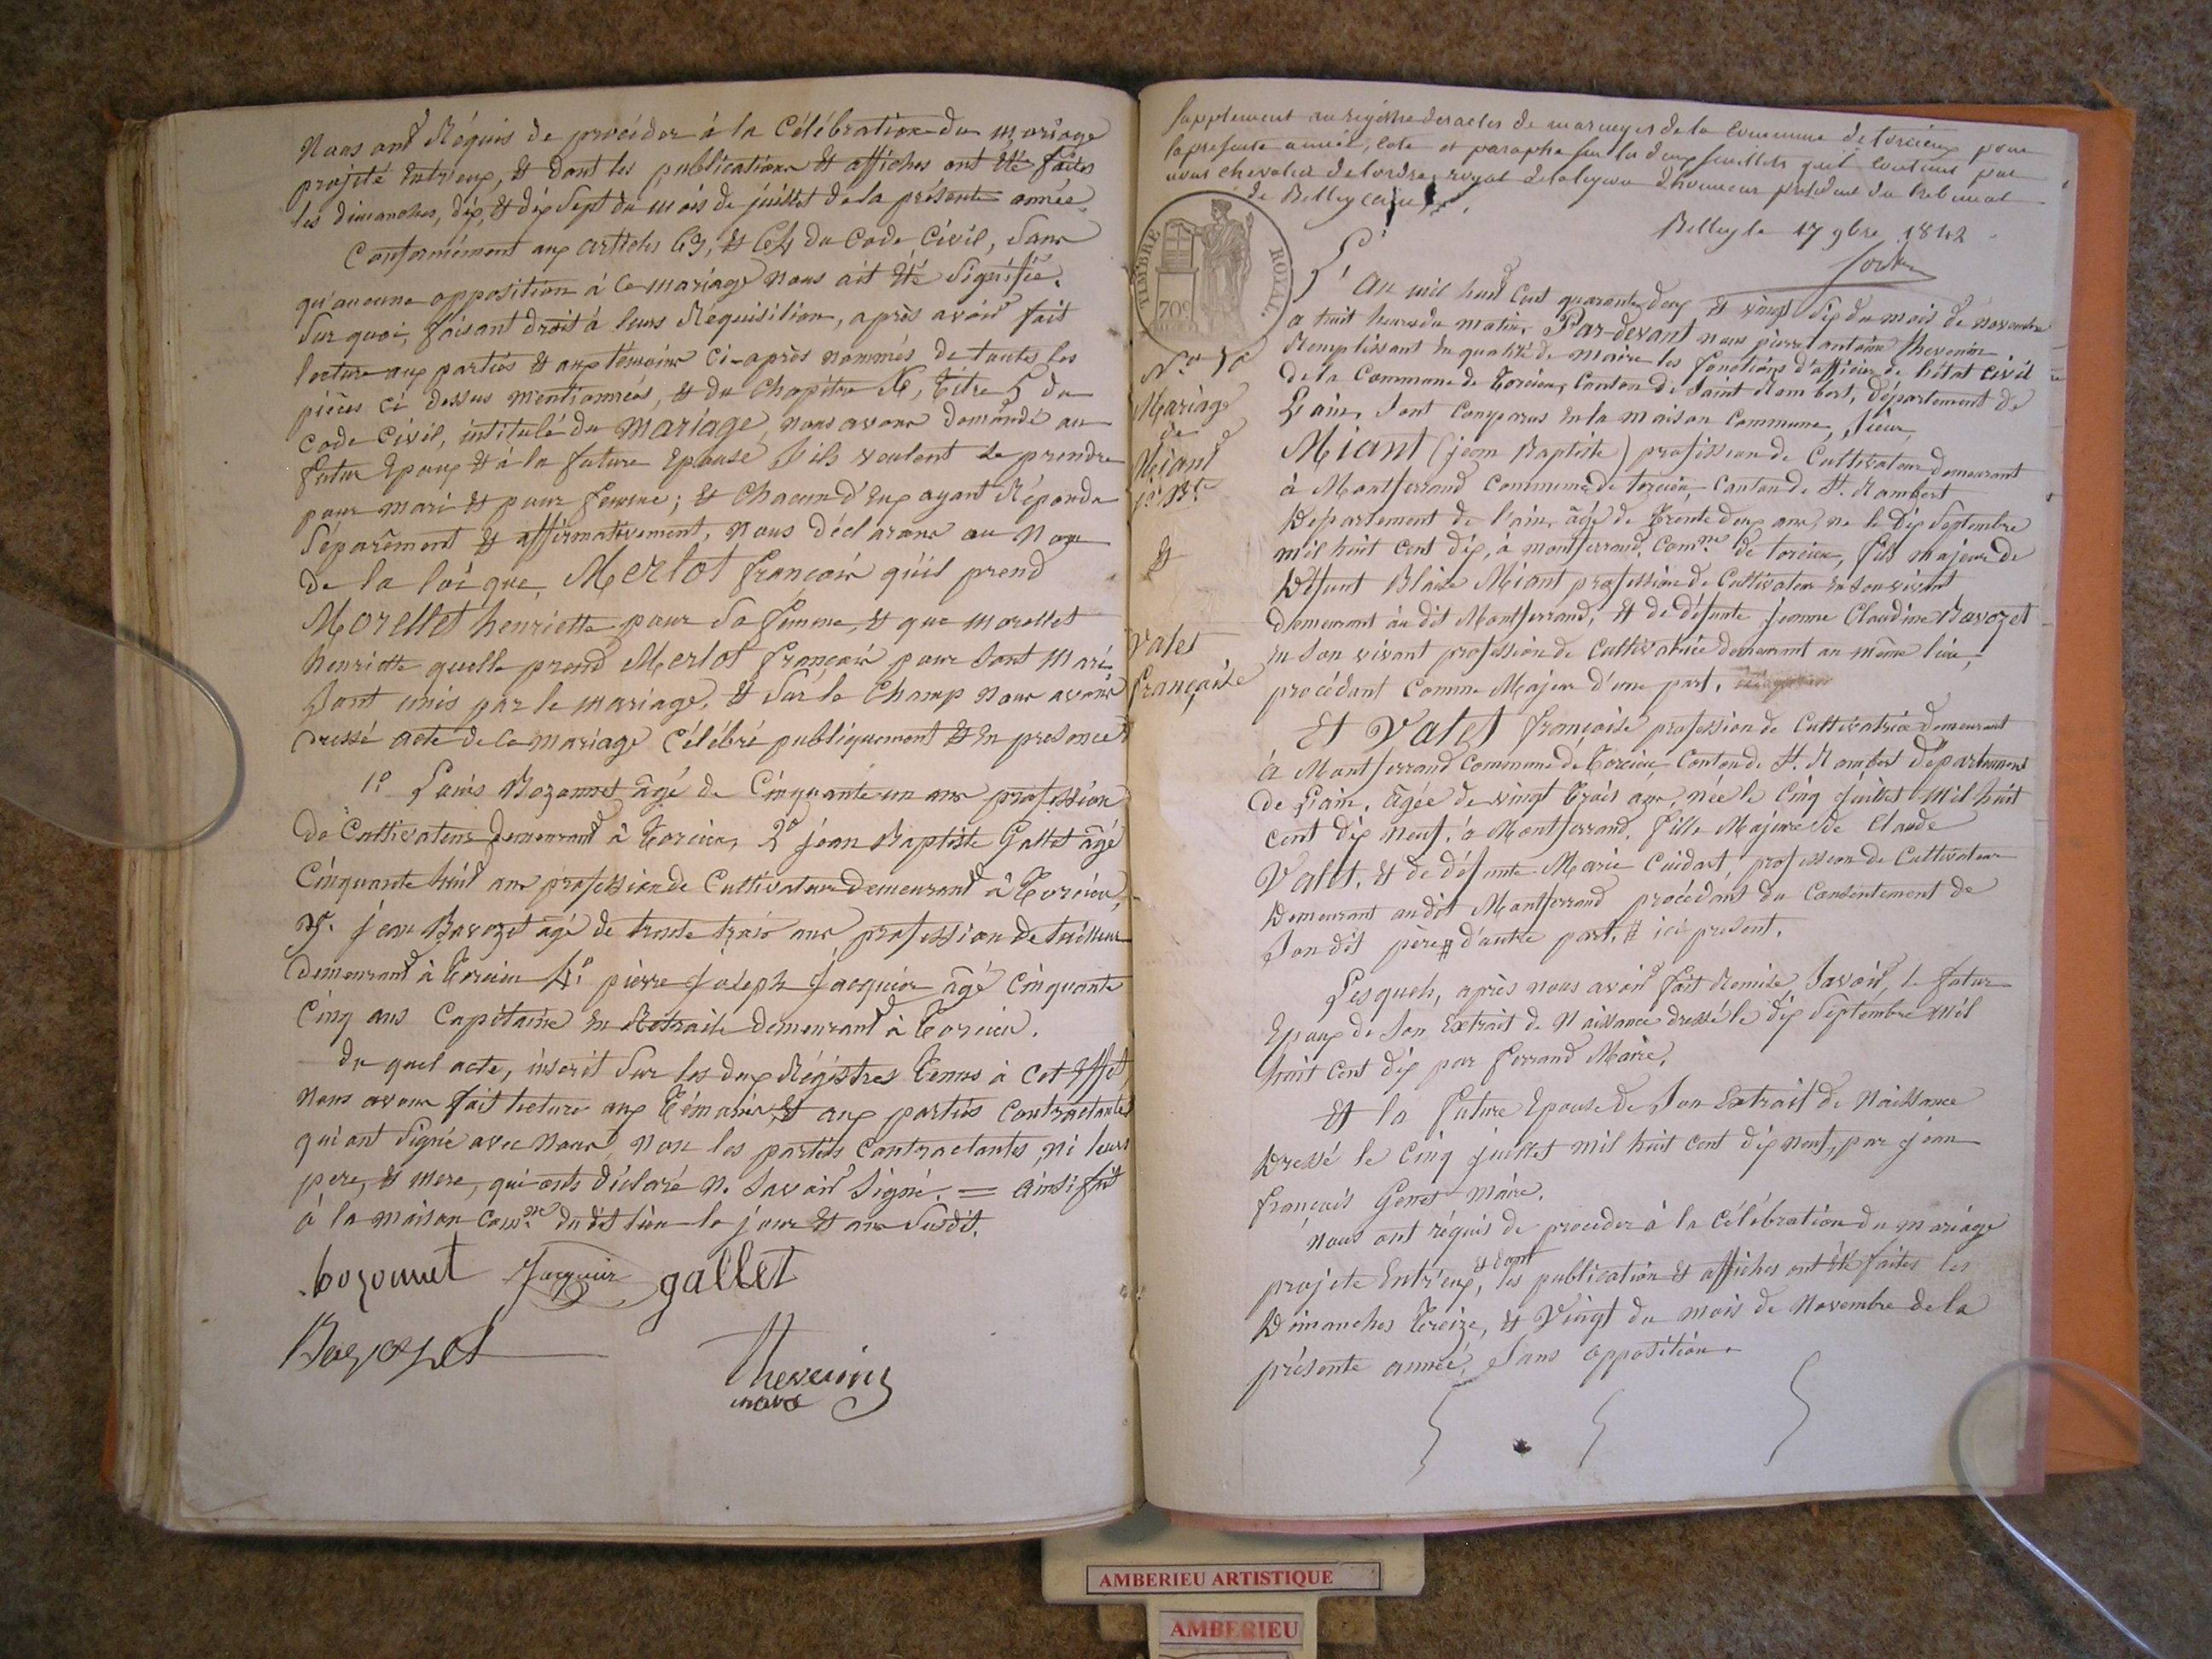 Nous ont Réquis de procéder à la Célébration du mariage
projeté Entr'eux, et dont les publications et affiches ont été faites
les dimanches, dix, et dix sept du mois de juillet de la présente année.
Conformément aux articles 63, et 64 du Code Civil, Sans
qu'aucune opposition à ce mariage nous ait été Signifiée.
Sur quoi, faisant droit à leurs Réquisition, après avoir fait
lecture aux parties et aux témoins ci-après nommés de toutes les
pièces ci dessus mentionnées, et du chapitre VI, titre 5 du
code Civil, intitulé du mariage, nous avons demandé au
futur Epoux et à la future Epouse S'ils veulent se prendre
pour mari et pour femme; et chacun d'eux ayant Répondu
Séparément et affirmativement, nous déclarons au Nom
de la loi que, Merlot françois qu'il prend
Morellet henriette pour Sa femme, et que morellet
henriette quelle prend Merlot françois pour Sont Mari
Sont unis par le mariage, et Sur le Champ nous avons
dressé acte de ce mariage Célébré publiquement et En presence
1º Louis Bozonnet âgé de Cinquante un ans profession
de Cultivateur Demeurant à Torcieu, 2º jean Baptiste Gallet âgé
Cinquante huit ans profession de Cultivateur demeurant à Torcieu,
3º. jean Bavozet âgé de trente trois ans profession de tailleur
demeurant à Torcieu 4º. pierre Joseph Jacquier âgé Cinquante
Cinq ans Capitaine En Retraite demeurant à Torcieu.
du quel acte, inscrit Sur les deux Régistres tenus à Cet Effet
nous avons fait lecture aux Témoins et aux parties Contractantes
qui ont Signé avec Nous, non les parties Contractantes, ni leurs
pere, et mere, qui onts déclaré N. Savoir Signé. = ainsi fait
à la maison Com.ne du dit lieu le jour et an Susdit.
bozonnet Jacquier gallet
Bavozet
Thevenin
maire
Supplement au registre des actes de mariages de la Commune de torcieux pour
la presente année, coté et paraphé sur les deux feuillets qu'il contient par
nous chevalier de lordre royal de la legion d'honneur president du tribunal
de Belley (ain)
Belley le 17 9bre 1842
TIMBRE ROYAL
70c
L'An mil huit Cent quarante deux et vingt Six du mois de novembre
a huit heures du matin, Par-devant nous pierre antoine thevenin
Remplissant En qualité de maire les fonctions d'officier de l'état Civil
de la Commune de Torcieu, Canton de Saint Rambert, Département de
L'ain, Sont Comparus En la maison Commune, Sieur
Miant (jean Baptiste) profession de Cultivateur demeurant
à Montferrand Commune de torcieu, canton de St. Rambert
Departement de l'ain, âgé de Trente deux ans, né le Dix Septembre
mil huit cent dix, à montferrand, Com.ne de torcieu, fils majeur de
Défunt Blaise Miant profession de Cultivateur En Son vivant
demeurant au dit Montferrand, et de défunte Jeanne Claudine Bavozet
En Son vivant profession de Cultivatrice demeurant au même lieu,
procédant Comme Majeur d'une part.
Et Valet françoise profession de Cultivatrice demeurant
à Montferrand Commune de Torcieu, Canton de St. Rambert Département
de L'ain, âgée de vingt trois ans, née le Cinq juillet Mil huit
cent dix neuf, à Montferrand, fille Majeure de Claude
Valet, et de défunte Marie Cuidart, profession de Cultivateur
Demeurant audit Montferrand procédant du Consentement de
Son dit père # d'autre part. # ici présent.
Lesquels, après nous avoir fait Remise, Savoir, le futur
Epoux de Son Extrait de Naissance dressé le dix Septembre Mil
huit Cent dix par Ferrand Maire,
Et la future Epouse de Son Extrait de Naissance
Dressé le Cinq juillet mil huit cent dix neuf, par jean
françois Genet maire,
nous ont réquis de proceder à la Célébration du mariage
projeté Entr'eux, et dont les publication et affiches ont été faites les
Dimanches Treize, et Vingt du mois de Novembre de la
présente année, Sans opposition.
Mariage
de
Miant
jn Bte
et
Valet
françoise
AMBERIEU ARTISTIQUE
AMBERIEU